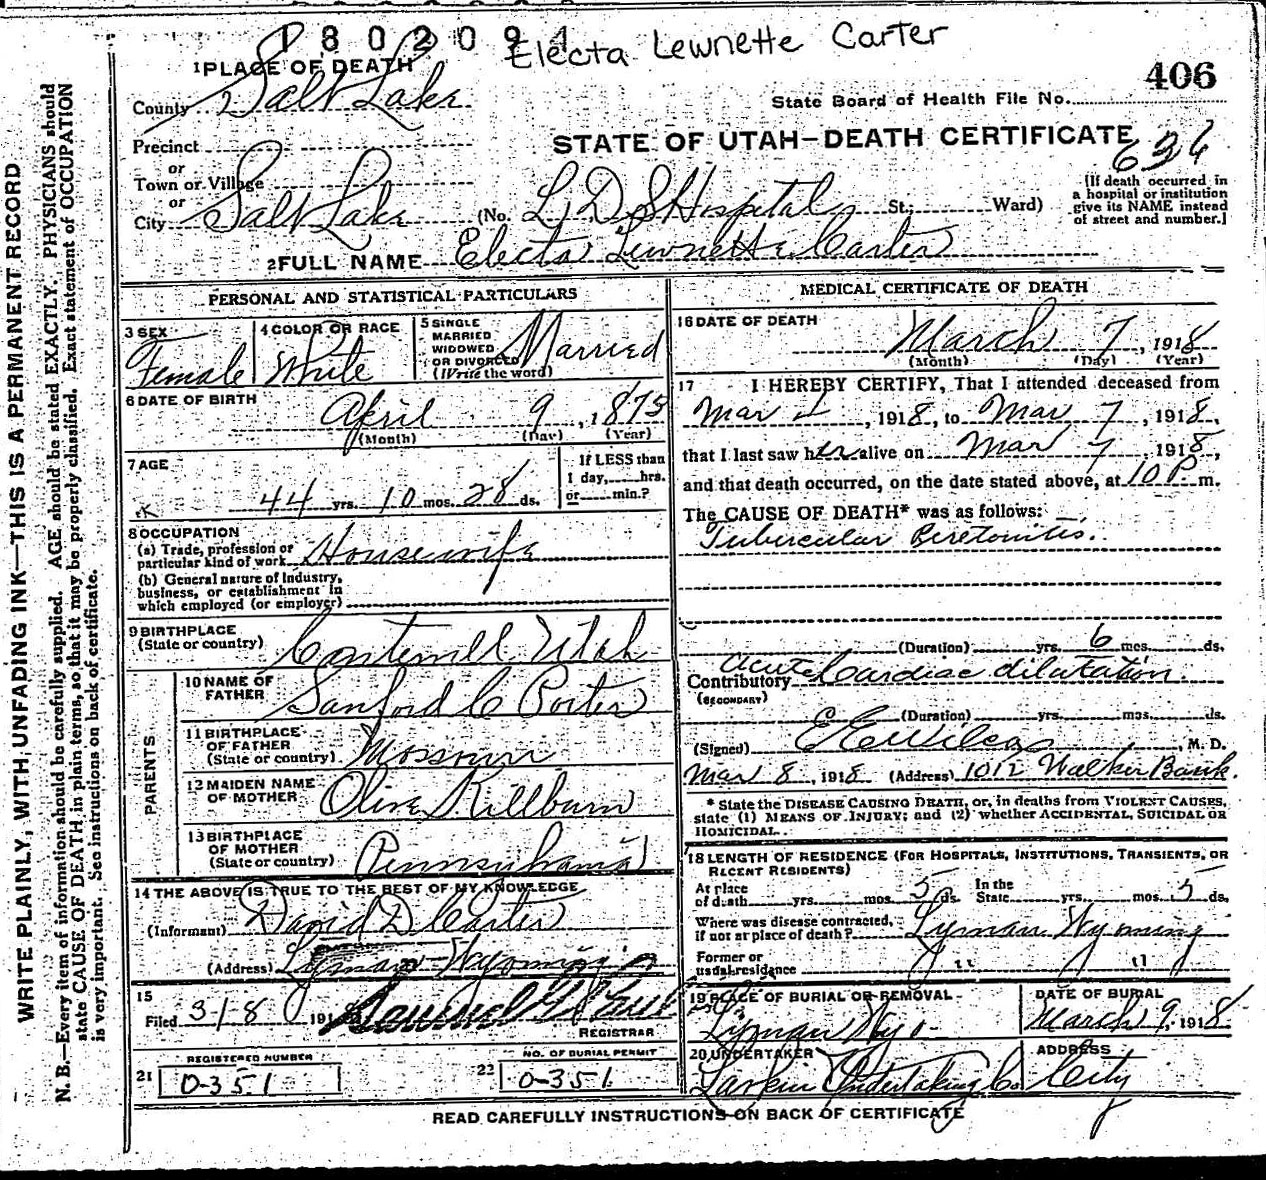 1802091
Electa Lewnette Carter
406
1 PLACE OF DEATH
County Salt Lake
State Board of Health File No.
STATE OF UTAH-DEATH CERTIFICATE
636
Precinct
or
Town or Village
or
City Salt Lake (No. L D S Hospital St; Ward)
[If death occurred in
a hospital or institution
give its NAME instead
of street and number.]
2 FULL NAME Electa Lewnette Carter
PERSONAL AND STATISTICAL PARTICULARS
3 SEX
Female
4 COLOR OR RACE
White
5 SINGLE
MARRIED
WIDOWED
OR DIVORCED
(Write the word)
Married
6 DATE OF BIRTH
April 9, 1873
(Month) (Day) (Year)
7 AGE
44 yrs. 10 mos. 28 ds.
If LESS than
1 day, hrs.
or min.?
8 OCCUPATION
(a) Trade, profession or
particular kind of work Housewife
(b) General nature of Industry,
business, or establishment in
which employed (or employer)
9 BIRTHPLACE
(State or country)
Utah
PARENTS
10 NAME OF
FATHER
Sanford C Porter
11 BIRTHPLACE
OF FATHER
(State or country)
Mossouri
12 MAIDEN NAME
OF MOTHER
Olive Killburn
13 BIRTHPLACE
OF MOTHER
(State or country)
Pennsylvania
14 THE ABOVE IS TRUE TO THE BEST OF MY KNOWLEDGE
(Informant) David D. Carter
(Address) Lyman Wyoming
15
Filed 3/8 191
REGISTRAR
REGISTERED NUMBER
21 0-351
NO. OF BURIAL PERMIT
22 0-351
MEDICAL CERTIFICATE OF DEATH
16 DATE OF DEATH
March 7, 1918
(Month) (Day) (Year)
17 I HEREBY CERTIFY, That I attended deceased from
Mar , 1918, to Mar 7, 1918,
that I last saw her alive on Mar 7 1918,
and that death occurred, on the date stated above, at 10 P. m.
The CAUSE OF DEATH* was as follows:
Tubercular Peretonitis.
(Duration) yrs. 6 mos. ds.
Contributory Acute Cardiac dilatation.
(SECONDARY)
(Duration) yrs. mos. ds.
(Signed) E E Wilcox, M. D.
Mar 8, 1918 (Address) 1012 Walker Bank.
* State the DISEASE CAUSING DEATH, or, in deaths from VIOLENT CAUSES,
state (1) MEANS OF INJURY; and (2) whether ACCIDENTAL, SUICIDAL OR
HOMICIDAL.
18 LENGTH OF RESIDENCE (FOR HOSPITALS, INSTITUTIONS, TRANSIENTS, OR
RECENT RESIDENTS)
At place
of death yrs. mos. 5 ds.
In the
State yrs. mos. 5 ds.
Where was disease contracted,
if not at place of death? Lyman Wyoming
Former or
usual residence " "
19 PLACE OF BURIAL OR REMOVAL
Lyman Wyo.
DATE OF BURIAL
March 9, 1918
20 UNDERTAKER
Larkin Undertaking Co.
ADDRESS
City
READ CAREFULLY INSTRUCTIONS ON BACK OF CERTIFICATE
WRITE PLAINLY, WITH UNFADING INK—THIS IS A PERMANENT RECORD
N. B.—Every item of information should be carefully supplied. AGE should be stated EXACTLY. PHYSICIANS should
state CAUSE OF DEATH in plain terms, so that it may be properly classified. Exact statement of OCCUPATION
is very important. See instructions on back of certificate.